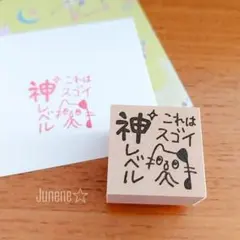 これは
スゴイ
神
レベル
これは
スゴイ
神
レベル
Junerie☆